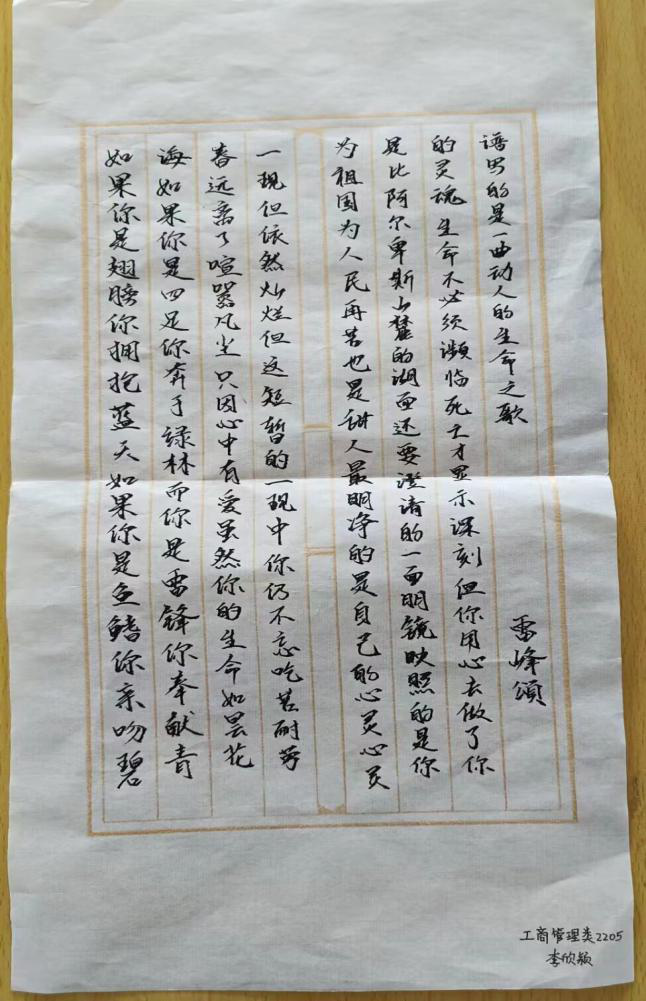 如果你是翅膀你拥抱蓝天如果你是鱼鳍你亲吻碧
海如果你是四足你奔于绿林而你是雷锋你奉献青
春远离了喧嚣凡尘只因心中有爱虽然你的生命如昙花
一现但依然灿烂但这短暂的一现中你仍不忘吃苦耐劳
为祖国为人民再苦也是甜人最明净的是自己的心灵心灵
是比阿尔卑斯山麓的湖面还要澄清的一面明镜映照的是你
的灵魂生命不必须濒临死亡才显示深刻但你用心去做了你
谱写的是一曲动人的生命之歌
雷峰頌
工商管理类2205
李欣颖